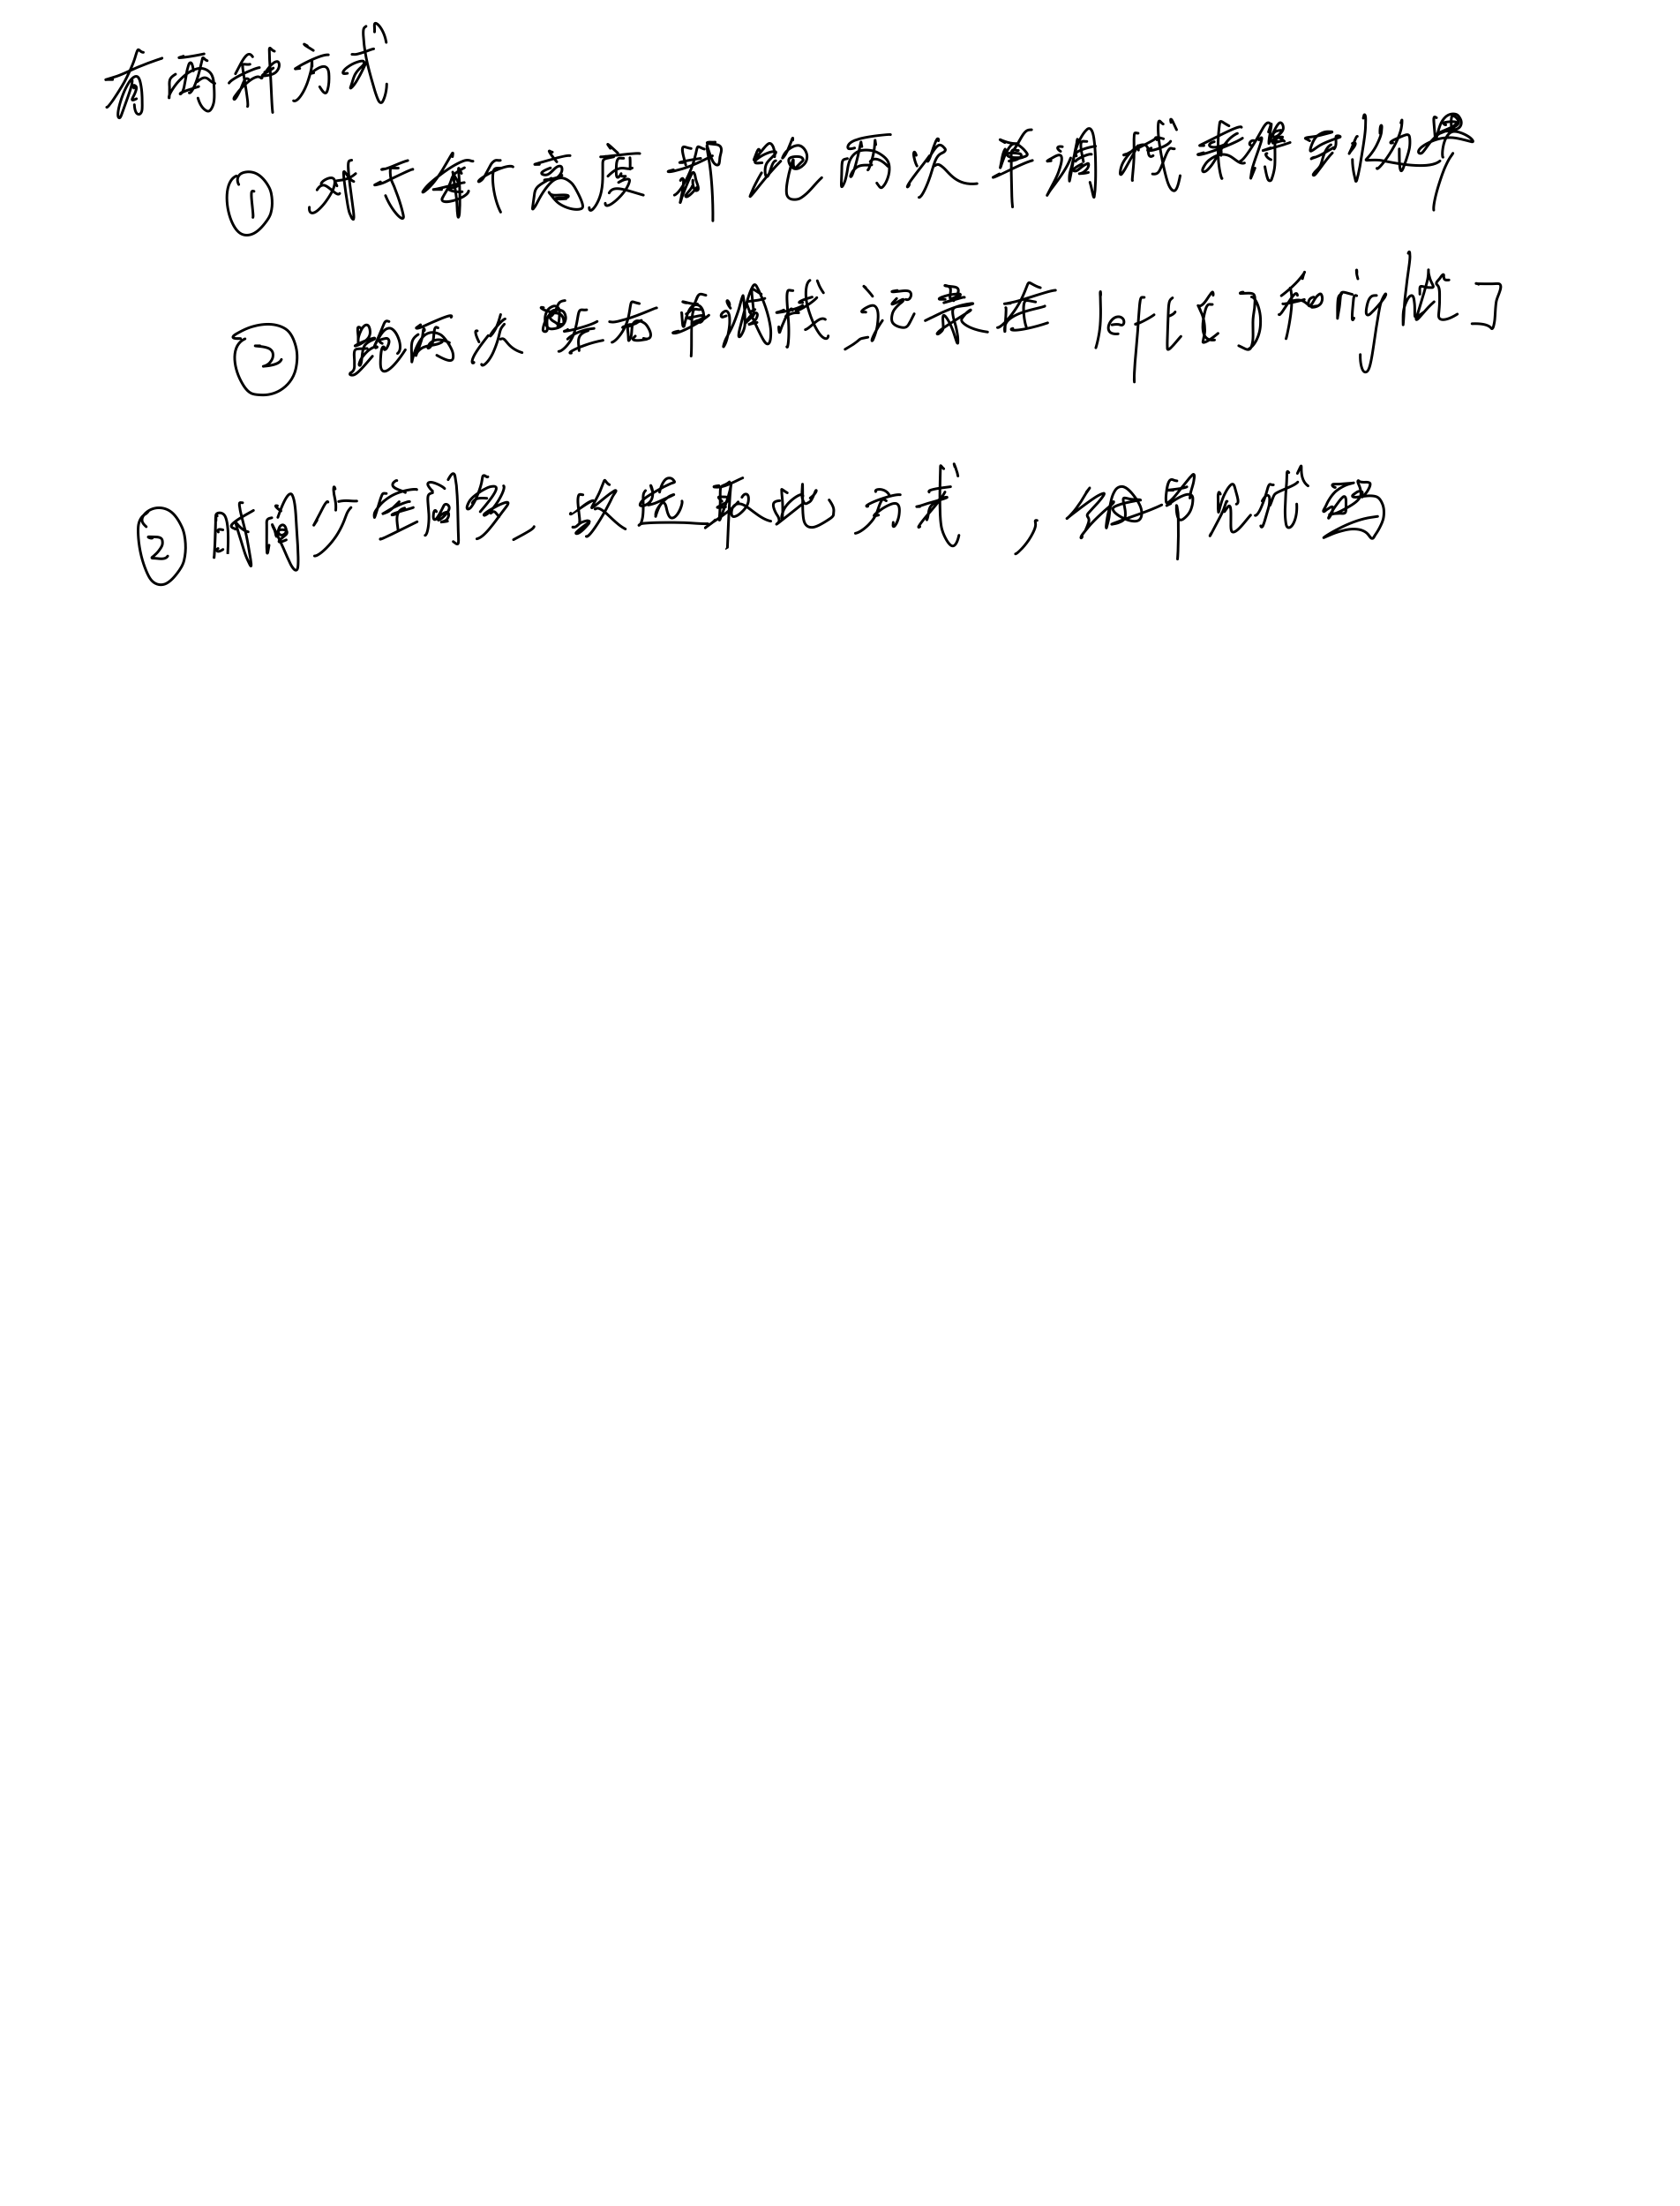 有两种方式
① 对于每个高度都跑两次单调栈求得到边界
② 跑两次单调栈记录在 left[]和right[]
② 时间少空间多, 故选取此方式, 细节优